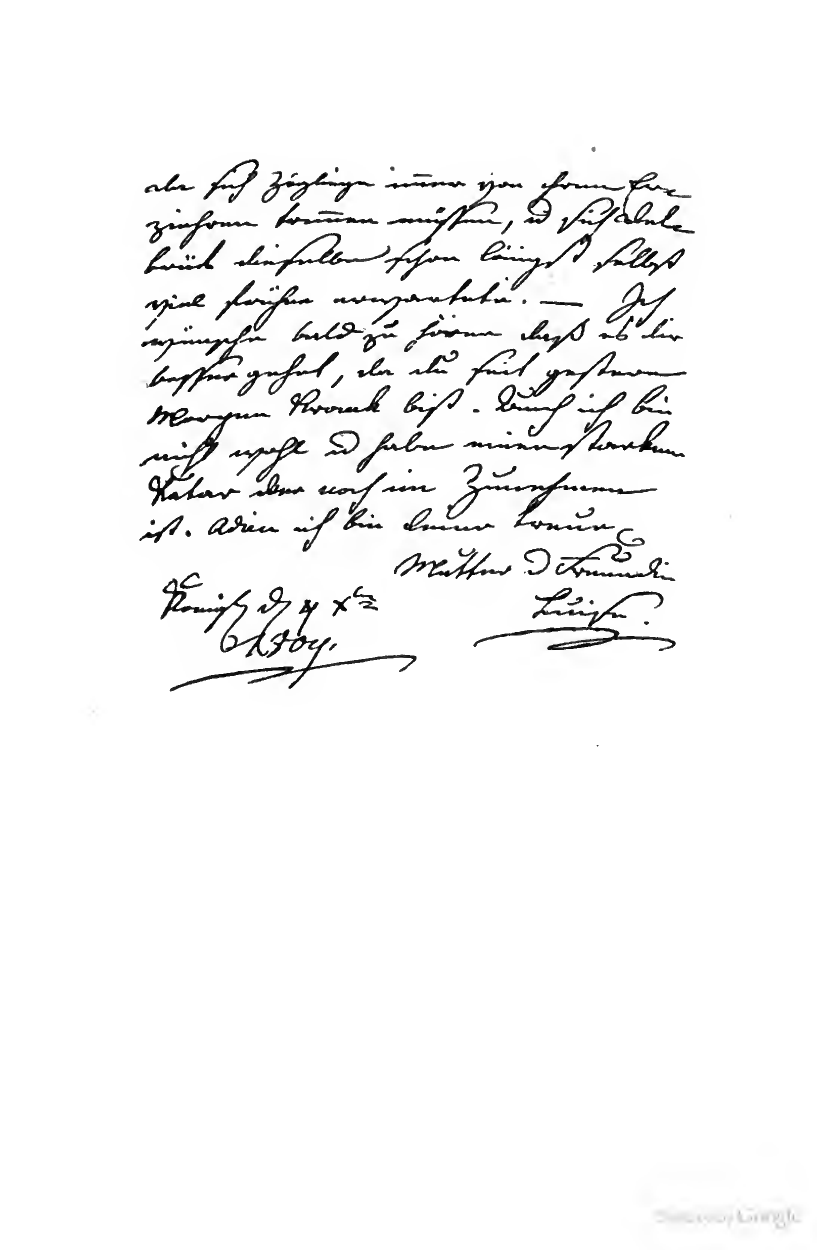 aber sich Zöglinge immer von ihren Er-
ziehern trennen müssen, u sich Del-
brück dieselbe schon längst selbst
viel früher erwartete. — Ich
wünsche bald zu hören daß es dir
besser gehet, da du seit gestern
Morgen Krank bist. Auch ich bin
nicht wohl u habe einen starken
Katar der noch im Zunehmen
ist. Adieu ich bin deine treue
Mutter u Freundin
Königsb d 4 X
Luise.